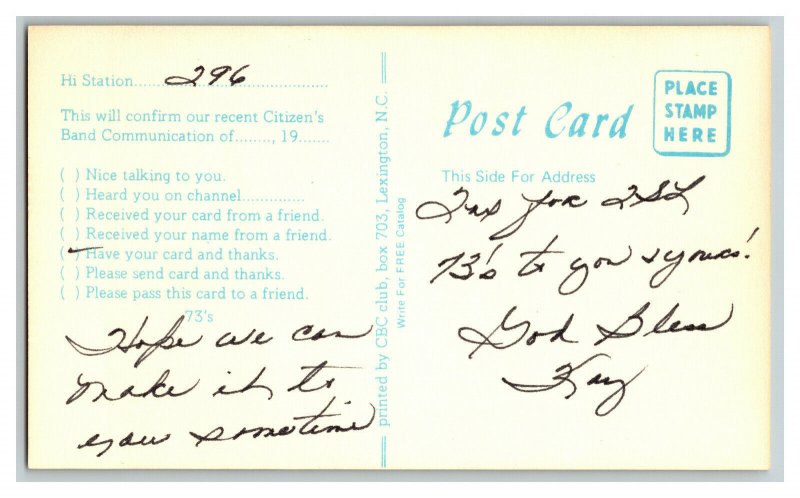 Hi Station.......296.......
This will confirm our recent Citizen's
Band Communication of........, 19.......
( ) Nice talking to you.
( ) Heard you on channel.............
( ) Received your card from a friend.
( ) Received your name from a friend.
(✓) Have your card and thanks.
( ) Please send card and thanks.
( ) Please pass this card to a friend.
73's
Hope we can
make it to
your sometime
printed by CBC club, box 703, Lexington, N.C.
Write For FREE Catalog
Post Card
PLACE
STAMP
HERE
This Side For Address
Tnx for QSL
73's to you & yours!
God Bless
Kay